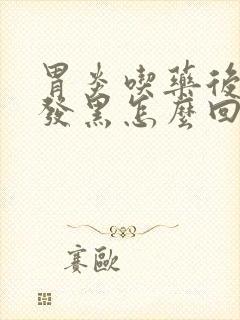 胃炎喫藥後
發黑怎麼回
賽歐